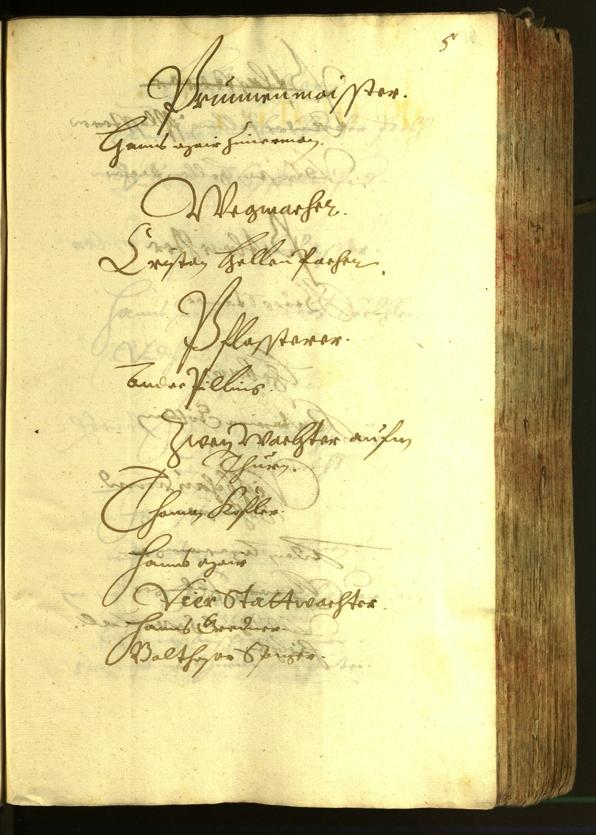 5
Prunnenmaister.
Hanns Mair Zimerman.
Wegmacher.
Cristan Hellenstainer.
Pflassterer.
Andre Pillius.
Zwen Wachter aufm
Thurn.
Thaman Kofler.
Hanns Mair
Vier Stattwachter.
Hanns Gredner.
Balthasar